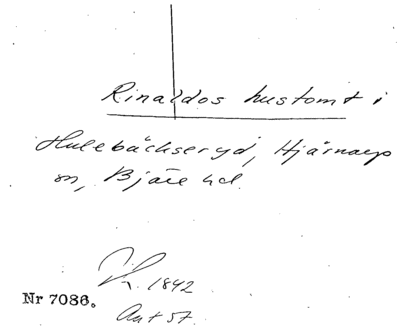 Rinaldos hustomt i
Hulebäckseryd, Hjärnarp
sn, Bjäre hd.
1842
Nr 7086.
Ant 57.